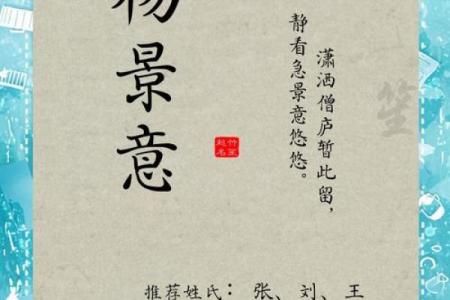 杨景意
潇洒僧庐暂此留，
静看急景意悠悠。
竹笙
起名
笙
推荐姓氏：张、刘、王